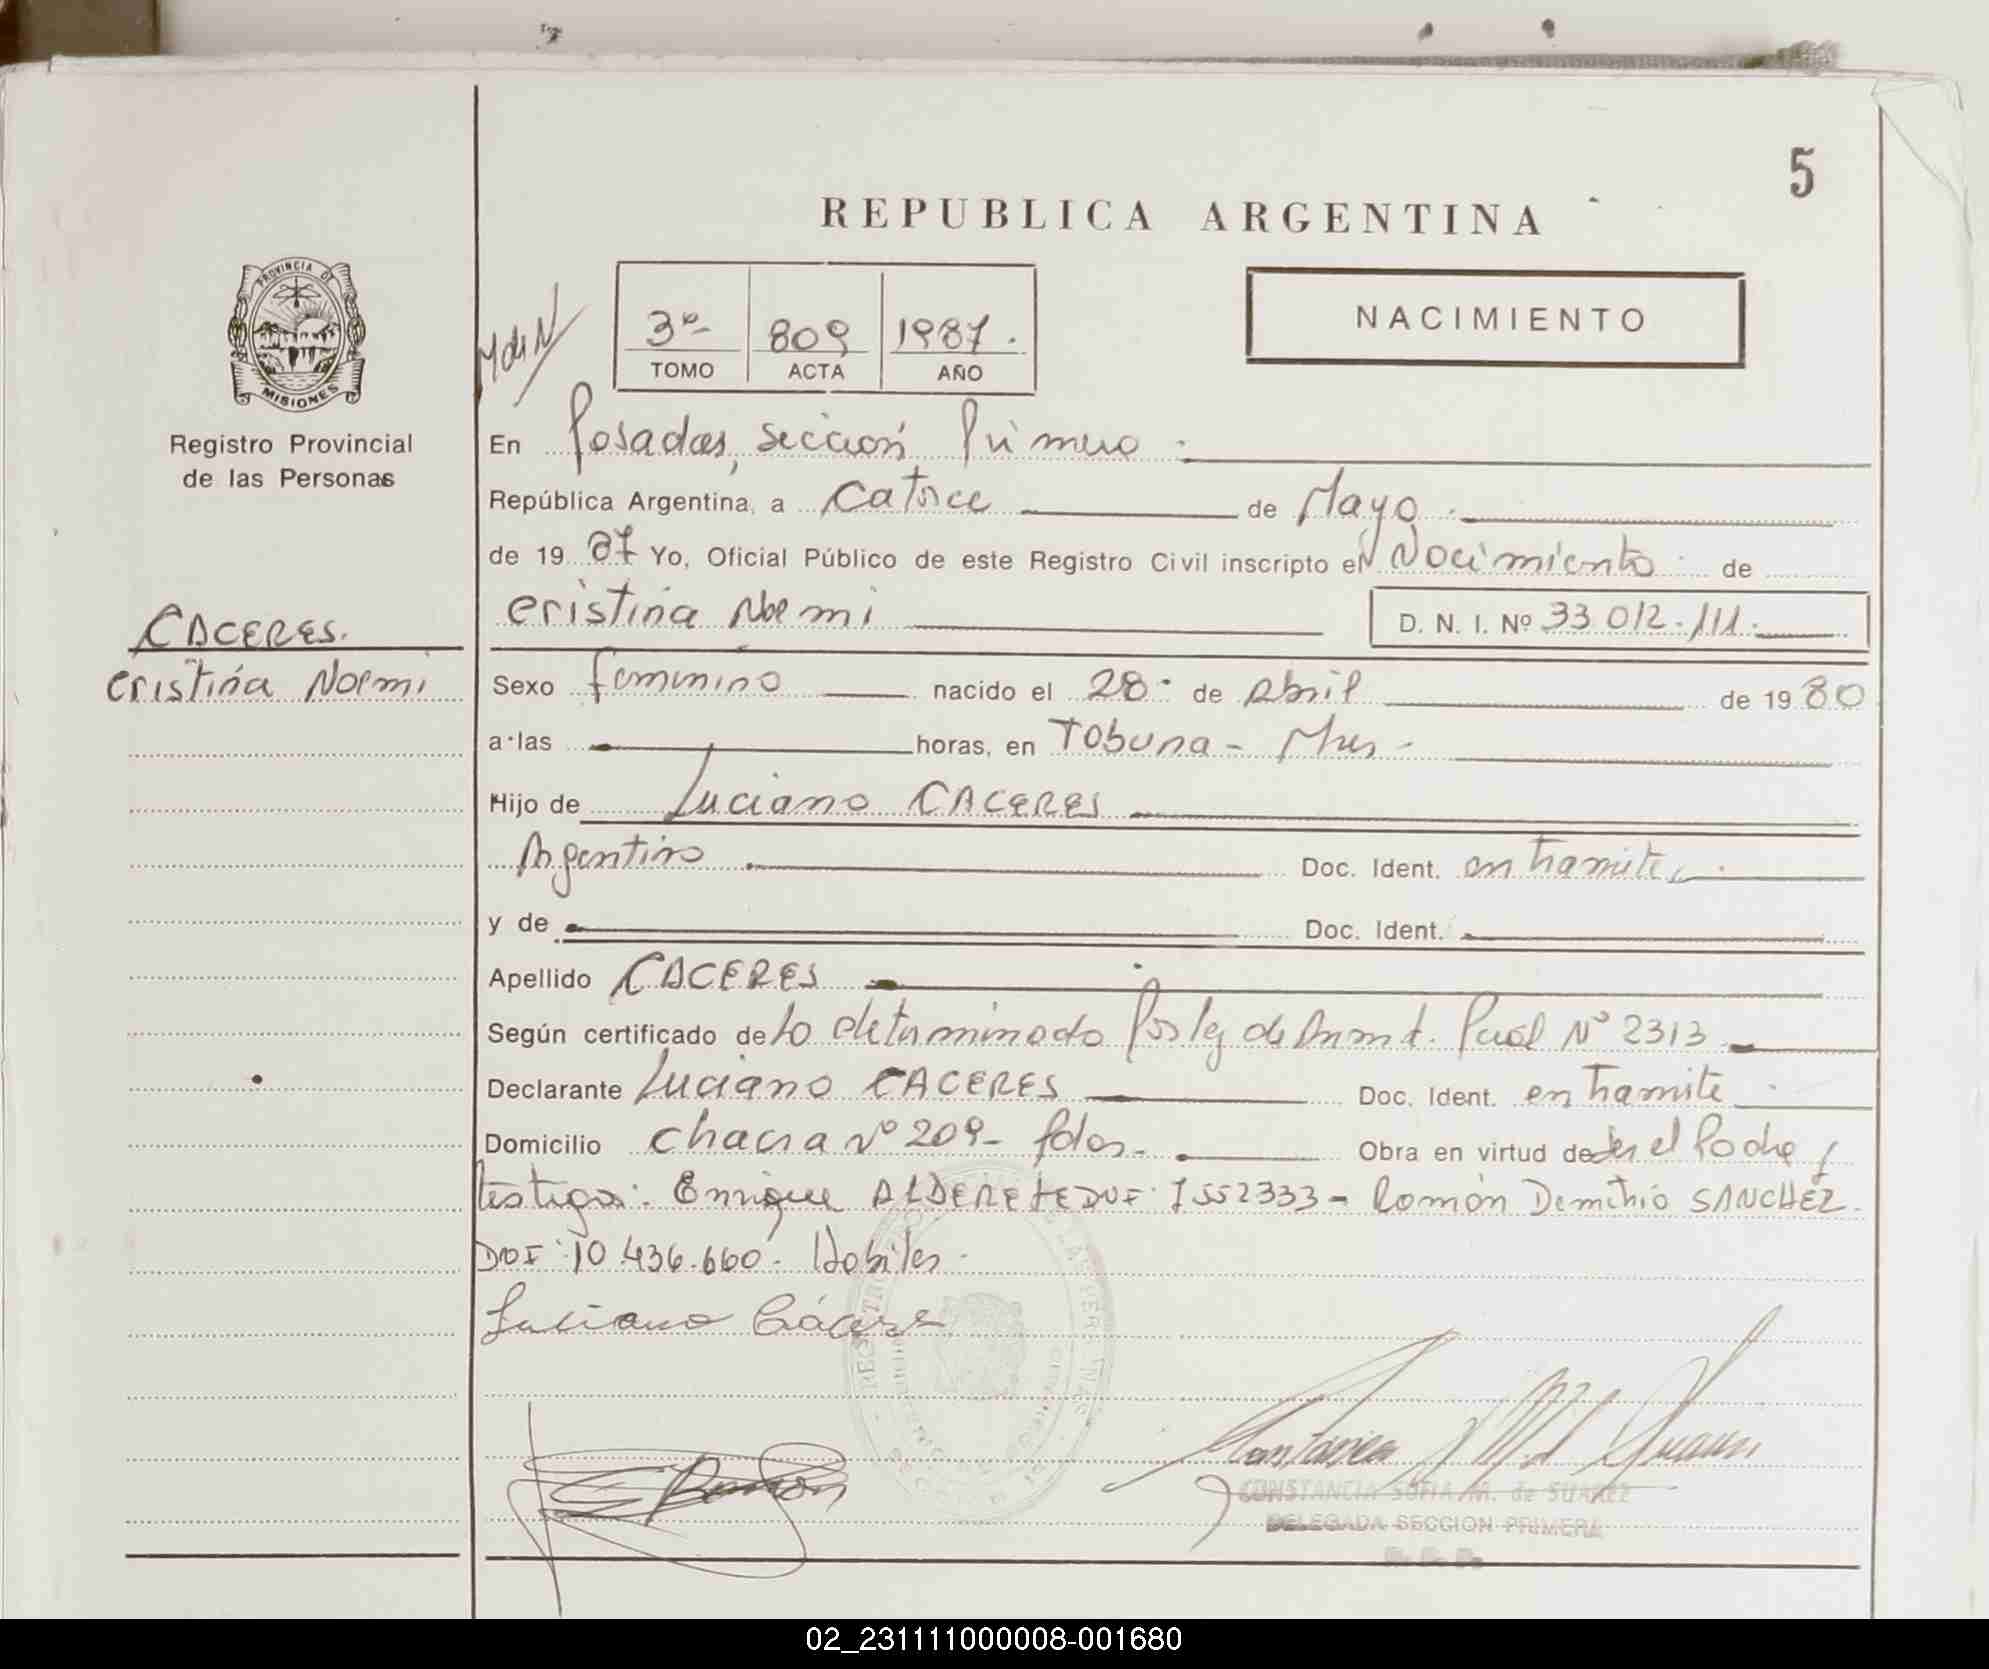 5
REPUBLICA ARGENTINA
PROVINCIA DE
MISIONES
Registro Provincial
de las Personas
3º 809 1987.
TOMO ACTA AÑO
NACIMIENTO
En Posadas, sección Primera
República Argentina, a Catorce de Mayo
de 19 87 Yo, Oficial Público de este Registro Civil inscripto el Nacimiento de
Cristina Noemi D. N. I. Nº 33.012.111.
CACERES.
Cristina Noemi
Sexo femenino nacido el 28 de Abril de 19 80
a las horas, en Tobuna - Mnes -
Hijo de Luciano CACERES
Argentino Doc. Ident. en tramite
y de Doc. Ident.
Apellido CACERES
Según certificado de lo determinado por ley de Pcial Nº 2313
Declarante Luciano CACERES Doc. Ident. en tramite
Domicilio chacra Nº 209 - Pdas. Obra en virtud de ser el Padre y
testigos: Enrique ALDERETE DNI: 7552333 - Román Demetrio SANCHEZ
DNI: 10.436.660. Habiles
Luciano Cáceres
CONSTANCIA SOFIA M. de SUAREZ
DELEGADA SECCION PRIMERA
02_231111000008-001680